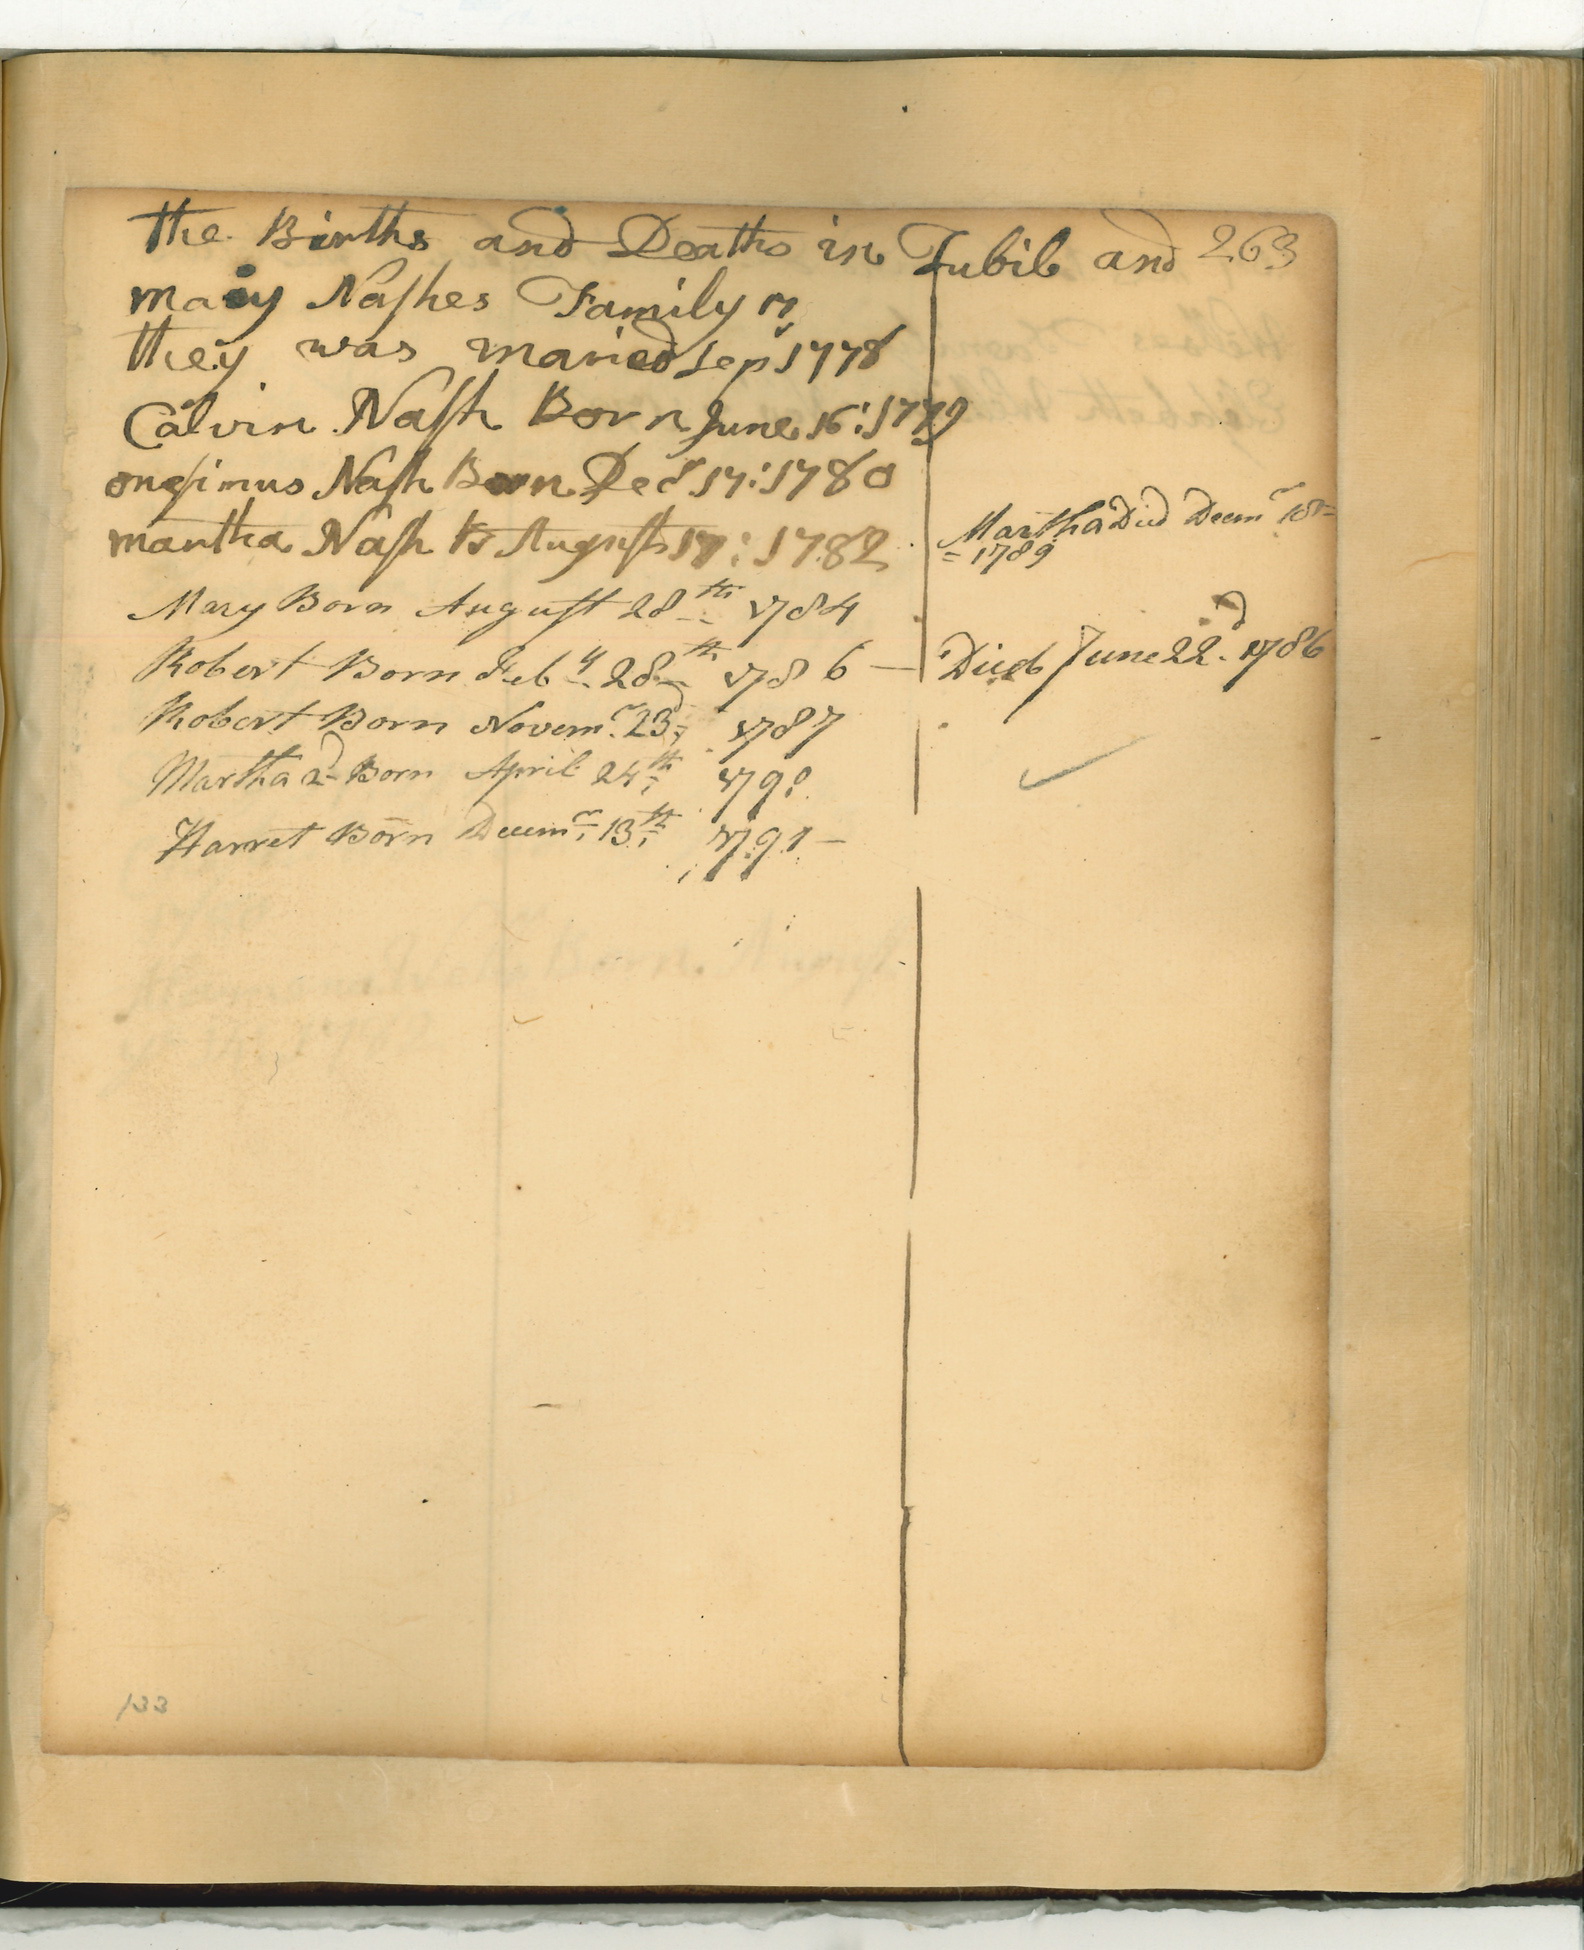 the Births and Deaths in Jubil and 263
mary Naſhes Family
they was maried Sepr 1778
Calvin Naſh Born June 16: 1779
oneſimus Naſh Born Decr 17: 1780
martha Naſh Br August 17: 1782
Martha Died Decmr 10th
= 1789
Mary Born Auguſt 28th 1784
Robert Born Feby 28th 1786 — Died June 22d 1786
Robert Born Novemr 23d 1787
Martha 2d Born April 24th 1790
Harret Born Decemr 13th 1791 —
133